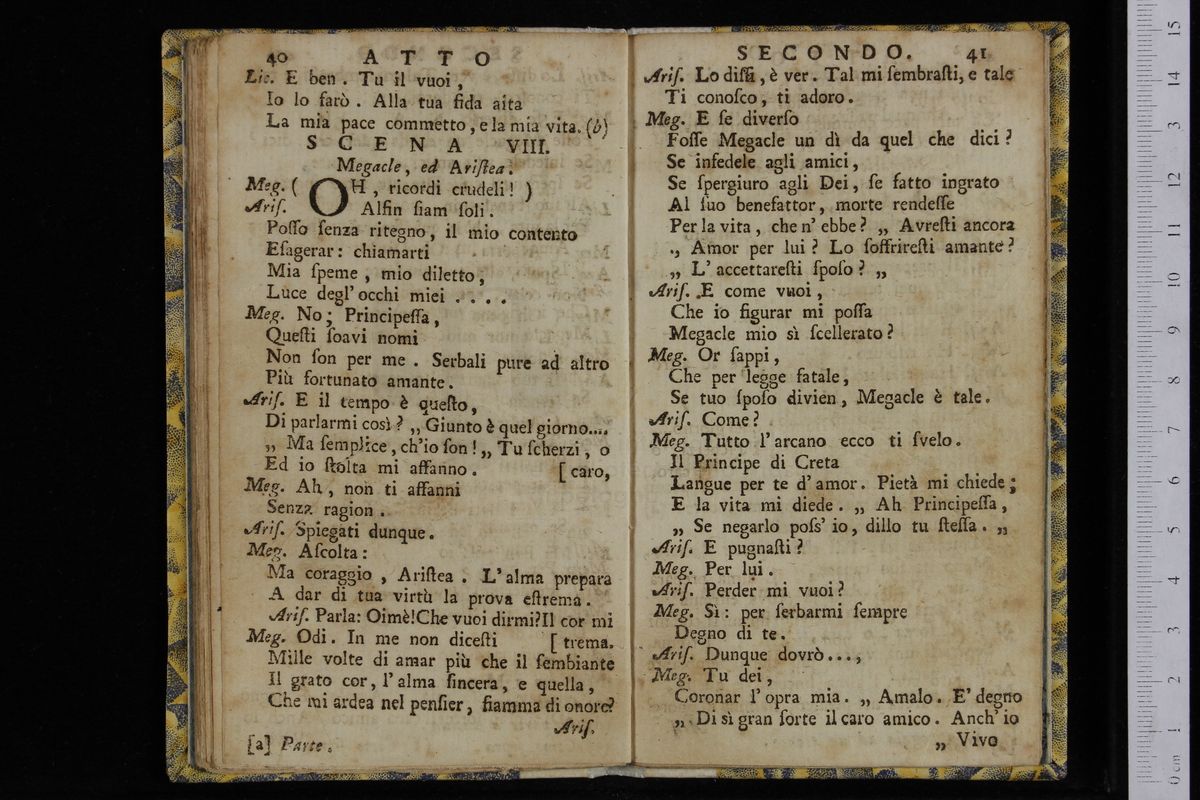 40 ATTO
Lic. E ben . Tu il vuoi ,
Io lo farò . Alla tua fida aita
La mia pace commetto , e la mia vita. (b)
SCENA VIII.
Megacle, ed Ariſtea.
Meg. ( OH , ricordi crudeli ! )
Ariſ. Alfin ſiam ſoli .
Poſſo ſenza ritegno, il mio contento
Eſagerar : chiamarti
Mia ſpeme , mio diletto,
Luce degl' occhi miei . . . .
Meg. No; Principeſſa,
Queſti ſoavi nomi
Non ſon per me . Serbali pure ad altro
Più fortunato amante .
Ariſ. E il tempo è queſto,
Di parlarmi così ? „ Giunto è quel giorno....
„ Ma ſemplice, ch'io ſon ! „ Tu ſcherzi , o
Ed io ſtolta mi affanno . [ caro,
Meg. Ah, non ti affanni
Senza ragion .
Ariſ. Spiegati dunque.
Meg. Aſcolta :
Ma coraggio , Ariſtea . L'alma prepara
A dar di tua virtù la prova eſtrema .
Ariſ. Parla: Oimè!Che vuoi dirmi?Il cor mi
Meg. Odi . In me non diceſti [ trema.
Mille volte di amar più che il ſembiante
Il grato cor, l'alma ſincera, e quella,
Che mi ardea nel penſier, fiamma di onore?
Ariſ.
[a] Parte .
SECONDO. 41
Ariſ. Lo diſſi, è ver. Tal mi ſembraſti, e tale
Ti conoſco, ti adoro.
Meg. E ſe diverſo
Foſſe Megacle un dì da quel che dici ?
Se infedele agli amici,
Se ſpergiuro agli Dei, ſe fatto ingrato
Al ſuo benefattor, morte rendeſſe
Per la vita , che n'ebbe ? „ Avreſti ancora
„ Amor per lui ? Lo ſoffrireſti amante ?
„ L'accettareſti ſpoſo ? „
Ariſ. E come vuoi ,
Che io figurar mi poſſa
Megacle mio sì ſcellerato ?
Meg. Or ſappi,
Che per legge fatale,
Se tuo ſpoſo divien , Megacle è tale.
Ariſ. Come ?
Meg. Tutto l'arcano ecco ti ſvelo.
Il Principe di Creta
Langue per te d'amor. Pietà mi chiede ;
E la vita mi diede . „ Ah Principeſſa,
„ Se negarlo poſs' io, dillo tu ſteſſa . „
Ariſ. E pugnaſti ?
Meg. Per lui .
Ariſ. Perder mi vuoi ?
Meg. Sì : per ſerbarmi ſempre
Degno di te.
Ariſ. Dunque dovrò...,
Meg. Tu dei ,
Coronar l'opra mia. „ Amalo. E' degno
„ Di sì gran ſorte il caro amico. Anch' io
„ Vivo
0 cm 1 2 3 4 5 6 7 8 9 10 11 12 3 14 15